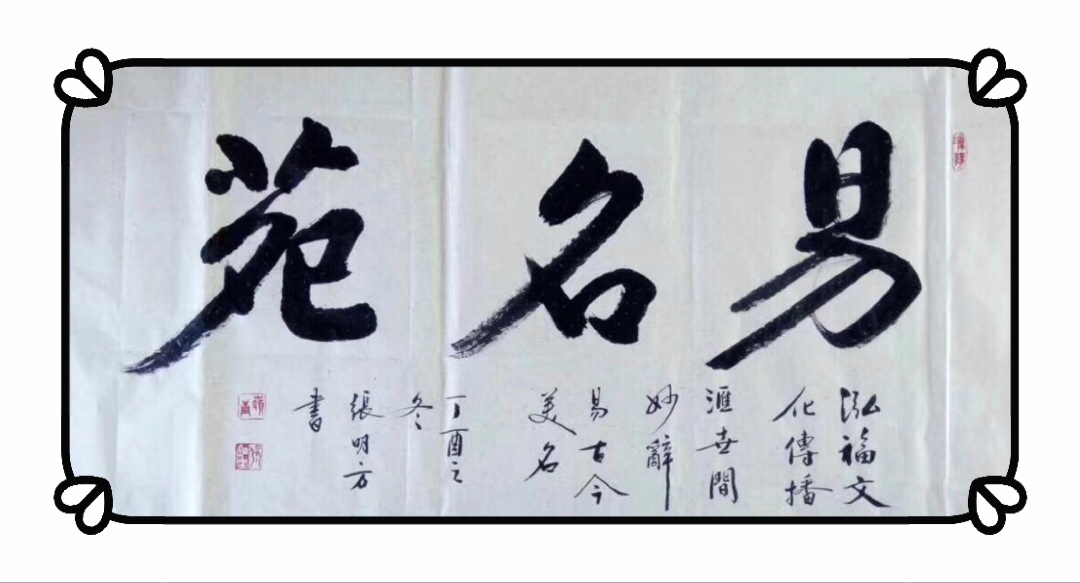 易名苑
泓福文
化傳播
滙世間
妙辭
易古今
美名
丁酉之
冬
張明方
書